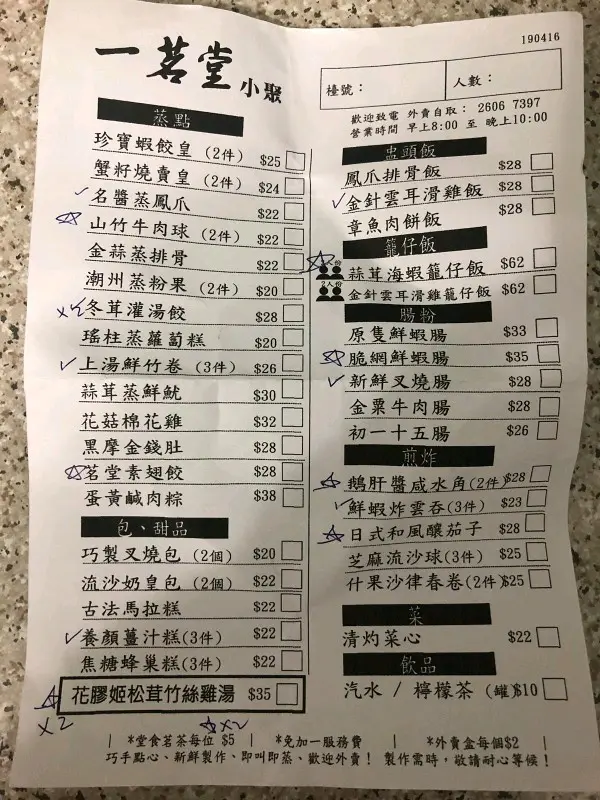 190416
一茗堂 小聚
檯號：
人數：
歡迎致電 外賣自取： 2606 7397
營業時間 早上8:00 至 晚上10:00
蒸點
珍寶蝦餃皇 (2件) $25
蟹籽燒賣皇 (2件) $24
名醬蒸鳳爪 $22
山竹牛肉球 (2件) $22
金蒜蒸排骨 $22
潮州蒸粉果 (2件) $20
冬茸灌湯餃 $28
瑤柱蒸蘿蔔糕 $20
上湯鮮竹卷 (3件) $26
蒜茸蒸鮮魷 $30
花菇棉花雞 $32
黑摩金錢肚 $28
茗堂素翅餃 $28
蛋黃鹹肉粽 $38
包、甜品
巧製叉燒包 (2個) $20
流沙奶皇包 (2個) $22
古法馬拉糕 $22
養顏薑汁糕(3件) $22
焦糖蜂巢糕(3件) $22
花膠姬松茸竹絲雞湯 $35
X2
X2
盅頭飯
鳳爪排骨飯 $28
金針雲耳滑雞飯 $28
章魚肉餅飯 $28
籠仔飯
蒜茸海蝦籠仔飯 $62
金針雲耳滑雞籠仔飯 $62
腸粉
原隻鮮蝦腸 $33
脆網鮮蝦腸 $35
新鮮叉燒腸 $28
金粟牛肉腸 $28
初一十五腸 $26
煎炸
鵝肝醬咸水角(2件) $28
鮮蝦炸雲吞(3件) $23
日式和風釀茄子 $28
芝麻流沙球(3件) $25
什果沙律春卷(2件) $25
菜
清灼菜心 $22
飲品
汽水 / 檸檬茶 (罐) $10
| *堂食茗茶每位 $5 | *免加一服務費 | *外賣盒每個$2 |
巧手點心、新鮮製作、即叫即蒸、歡迎外賣！ 製作需時，敬請耐心等候！